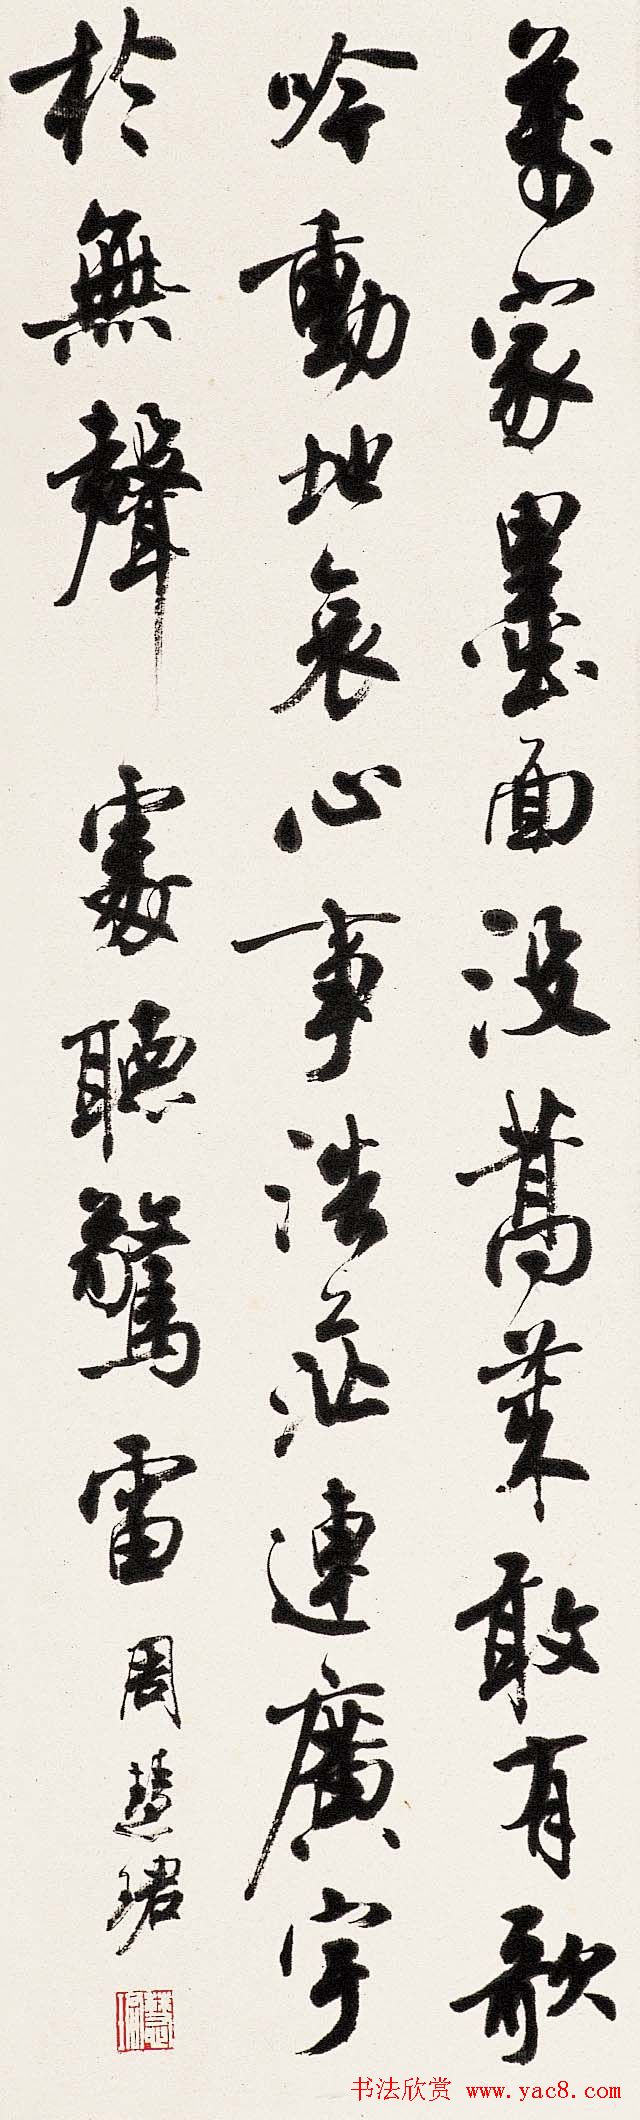 萬家墨面没蒿萊敢有歌
吟動地哀心事浩茫連廣宇
於無聲處聽驚雷
周慧珺
书法欣赏 www.yac8.com